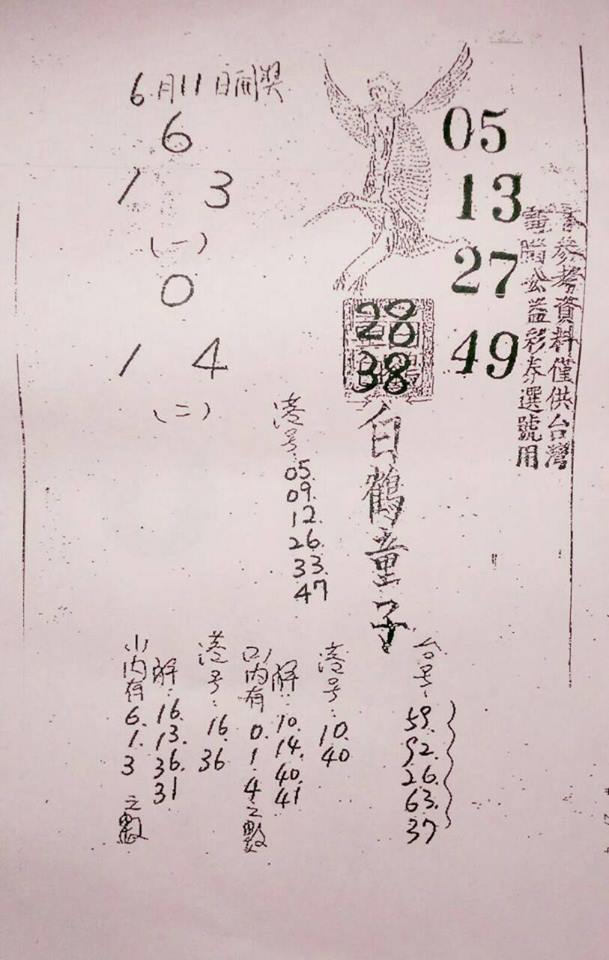 6月11日開獎
6
1 3
(一)
0
1 4
(二)
05
13
27
49
20
38
參考資料僅供台灣
電腦公益彩券選號用
白鶴童子
港号:
05
09.
12.
26.
33.
47
台号:
59.
92.
26.
63.
37
港号:
10.
40
解:
10.
14.
40.
41
(二)内有
0.
1.
4之數
港号:
16.
36
解:
16.
13.
36.
31
(一)内有
6.
1.
3
之數